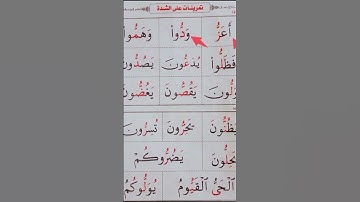 تمرينات على الشدة
أَعَزُّ وَدُّوا۟ وَهَمُّوا۟
فَظَلُّوا۟ يُدَعُّونَ يَصُدُّونَ
يَقُصُّونَ يَغُضُّونَ
يَظُنُّونَ يَخِرُّونَ تُسِرُّونَ
يَضُرُّوكُمْ
ٱلْحَىُّ ٱلْقَيُّومُ يُوَلُّوكُمُ